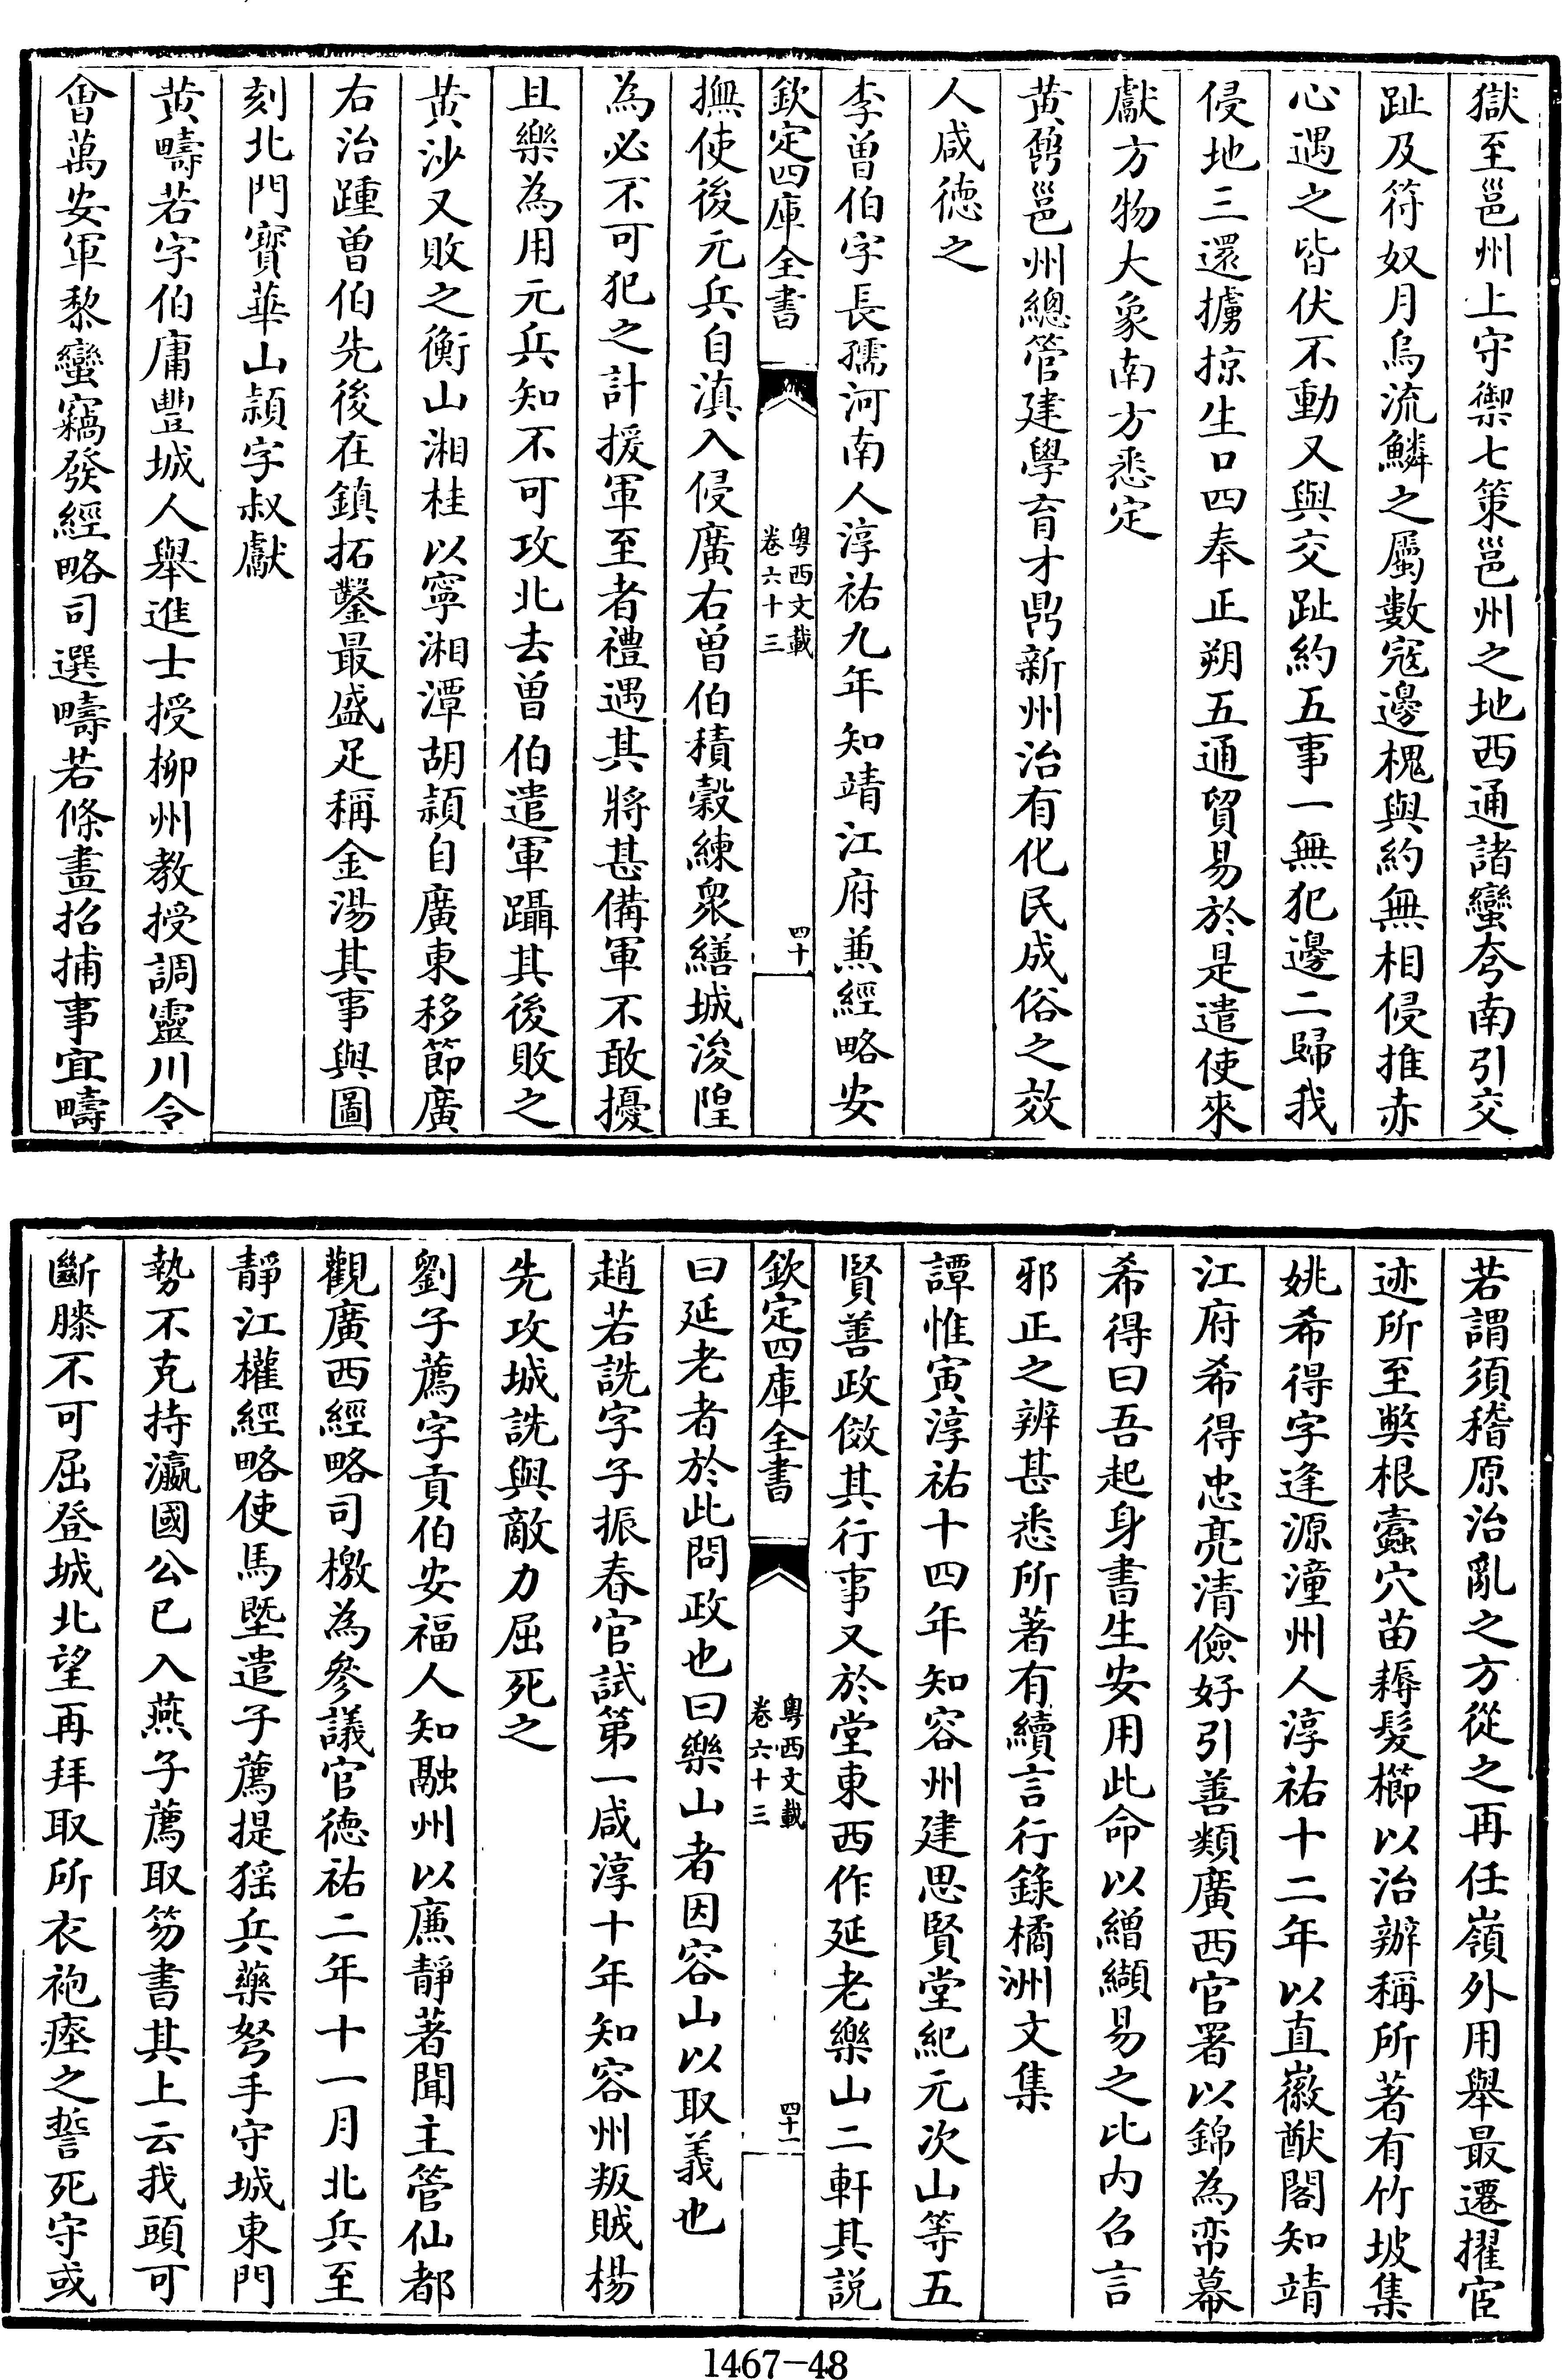 獄至邕州上守禦七策邕州之地西通諸蠻夸南引交
趾及符奴月烏流鱗之屬數寇邊槐與約無相侵推赤
心遇之皆伏不動又與交趾約五事一無犯邊二歸我
侵地三還擄掠生口四奉正朔五通貿易於是遣使來
獻方物大象南方悉定
黄鼐邕州總管建學育才鼎新州治有化民成俗之效
人咸德之
李曾伯字長孺河南人淳祐九年知靖江府兼經略安
欽定四庫全書
粤西文載
卷六十三
四十
撫使後元兵自滇入侵廣右曾伯積穀練衆繕城浚隍
為必不可犯之計援軍至者禮遇其將甚備軍不敢擾
且樂為用元兵知不可攻北去曾伯遣軍躡其後敗之
黄沙又敗之衡山湘桂以寧湘潭胡潁自廣東移節廣
右治踵曾伯先後在鎮拓鑿最盛足稱金湯其事與圖
刻北門寳華山潁字叔獻
黄疇若字伯庸豐城人舉進士授柳州教授調靈川令
會萬安軍黎蠻竊發經略司選疇若條畫招捕事宜疇
若謂須稽原治亂之方從之再任嶺外用舉最遷擢宦
迹所至獘根蠹穴苗耨髮櫛以治辦稱所著有竹坡集
姚希得字逢源潼州人淳祐十二年以直徽猷閣知靖
江府希得忠亮清儉好引善類廣西官署以錦為帟幕
希得曰吾起身書生安用此命以繒纈易之比内召言
邪正之辨甚悉所著有續言行錄橘洲文集
譚惟寅淳祐十四年知容州建思賢堂紀元次山等五
賢善政倣其行事又於堂東西作延老樂山二軒其説
欽定四庫全書
粤西文載
卷六十三
四十一
曰延老者於此問政也曰樂山者因容山以取義也
趙若詵字子振春官試第一咸淳十年知容州叛賊楊
先攻城詵與敵力屈死之
劉子薦字貢伯安福人知融州以廉靜著聞主管仙都
觀廣西經略司檄為參議官德祐二年十一月北兵至
靜江權經略使馬塈遣子薦提猺兵藥弩手守城東門
勢不克持瀛國公已入燕子薦取笏書其上云我頭可
斷膝不可屈登城北望再拜取所衣袍瘞之誓死守或
1467-48